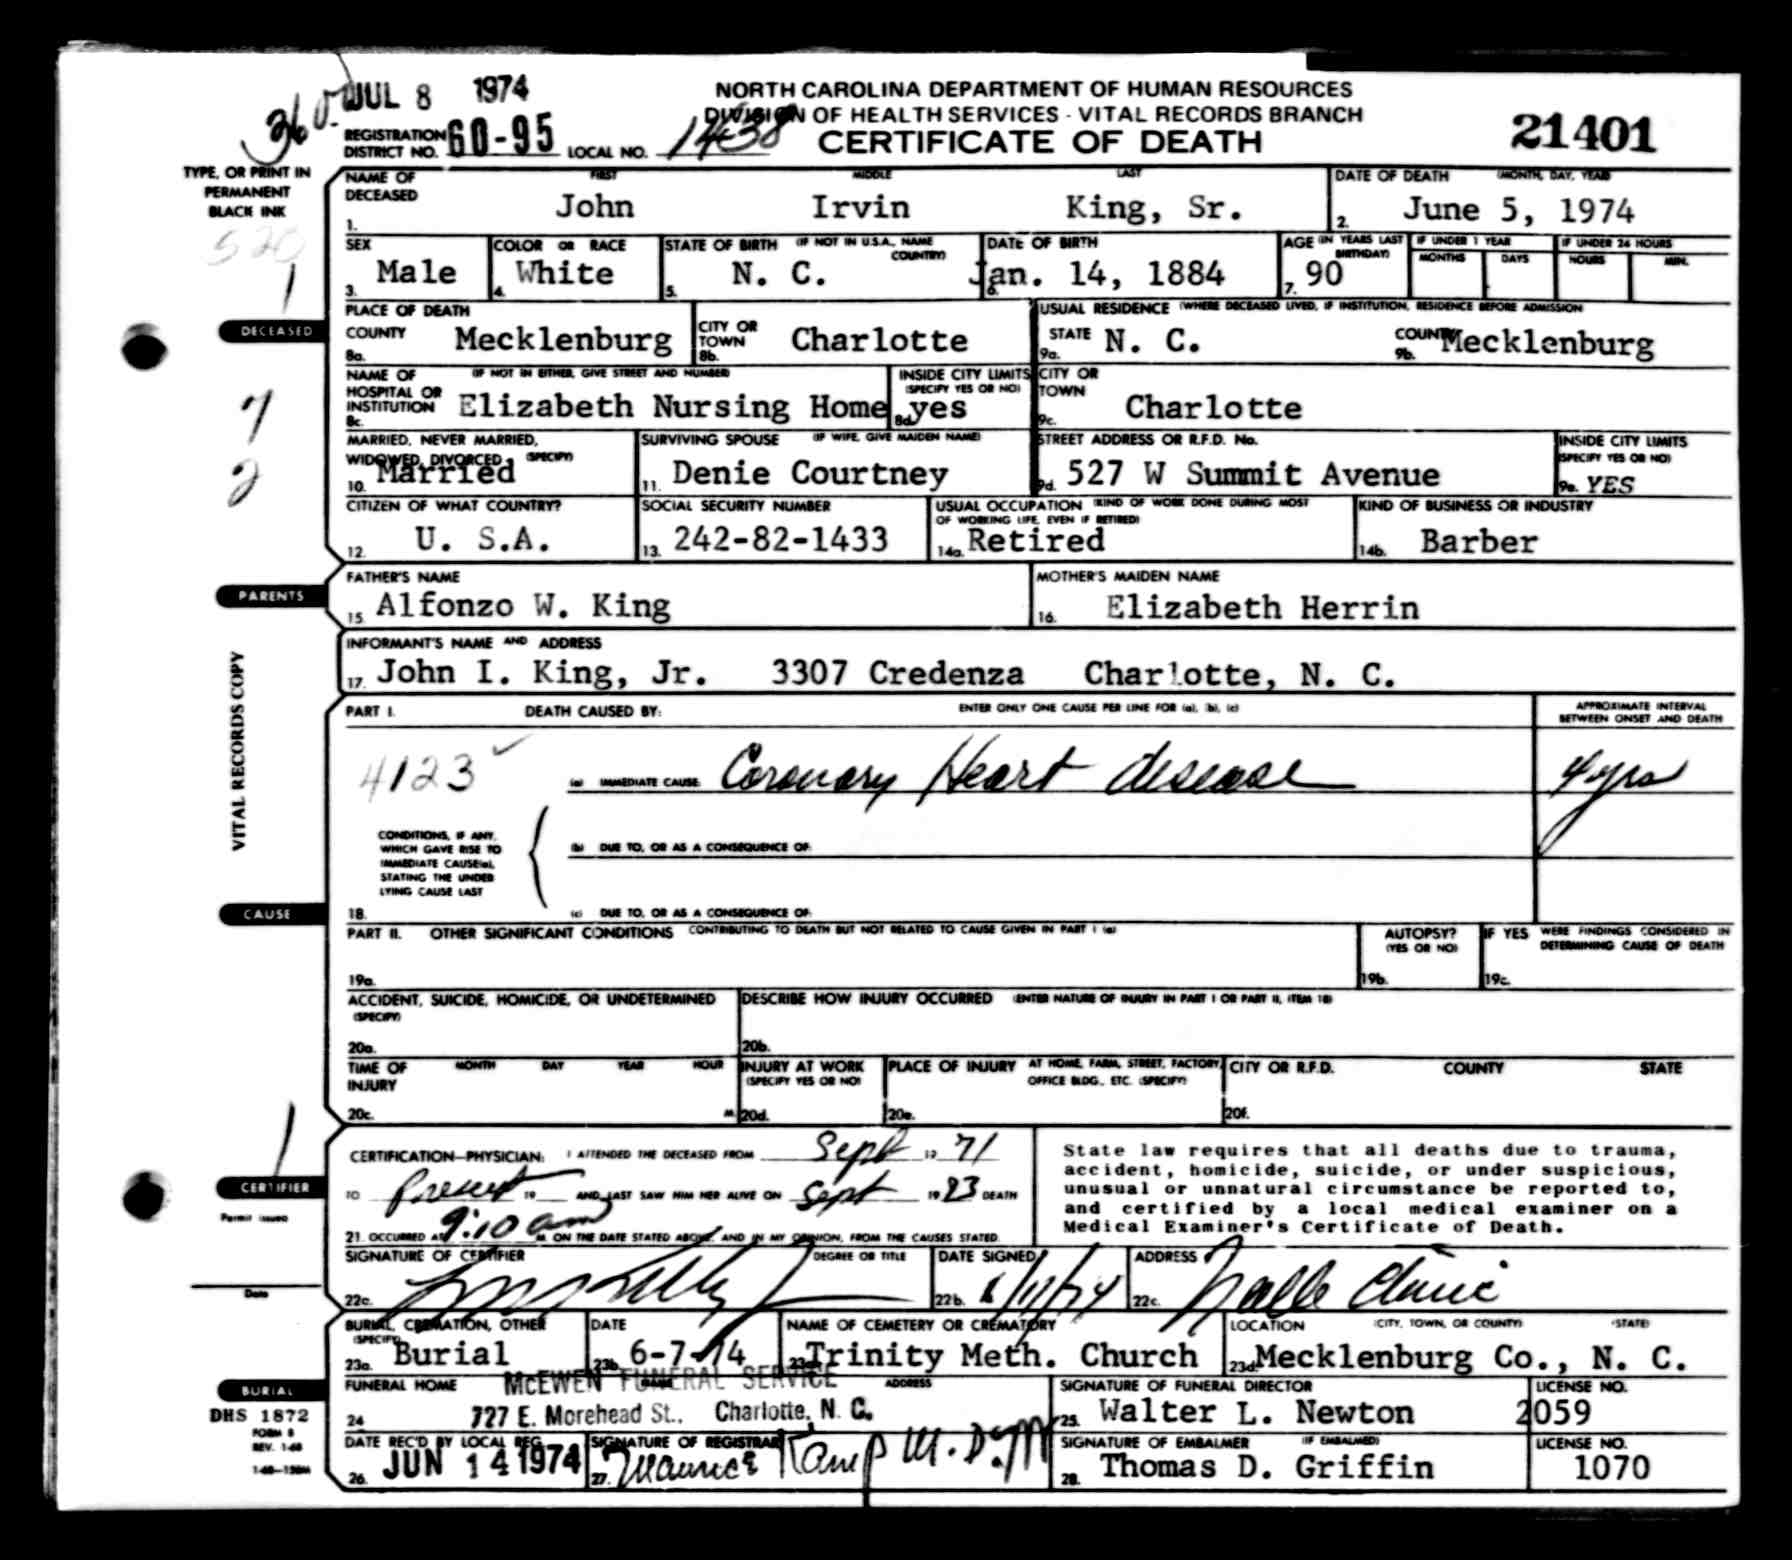 JUL 8 1974
NORTH CAROLINA DEPARTMENT OF HUMAN RESOURCES
DIVISION OF HEALTH SERVICES - VITAL RECORDS BRANCH
CERTIFICATE OF DEATH
21401
REGISTRATION DISTRICT NO. 60-95 LOCAL NO. 1438
TYPE, OR PRINT IN
PERMANENT
BLACK INK
520
1
NAME OF DECEASED FIRST MIDDLE LAST
1. John Irvin King, Sr.
DATE OF DEATH (MONTH, DAY, YEAR)
2. June 5, 1974
SEX
3. Male
COLOR OR RACE
4. White
STATE OF BIRTH (IF NOT IN U.S.A., NAME COUNTRY)
5. N. C.
DATE OF BIRTH
6. Jan. 14, 1884
AGE (IN YEARS LAST BIRTHDAY)
7. 90
IF UNDER 1 YEAR
MONTHS DAYS
IF UNDER 24 HOURS
HOURS MIN.
DECEASED
PLACE OF DEATH
COUNTY
8a. Mecklenburg
CITY OR TOWN
8b. Charlotte
USUAL RESIDENCE (WHERE DECEASED LIVED, IF INSTITUTION, RESIDENCE BEFORE ADMISSION
STATE
9a. N. C.
COUNTY
9b. Mecklenburg
7
2
NAME OF HOSPITAL OR INSTITUTION (IF NOT IN EITHER, GIVE STREET AND NUMBER)
8c. Elizabeth Nursing Home
INSIDE CITY LIMITS (SPECIFY YES OR NO)
8d. yes
CITY OR TOWN
9c. Charlotte
MARRIED, NEVER MARRIED, WIDOWED, DIVORCED (SPECIFY)
10. Married
SURVIVING SPOUSE (IF WIFE, GIVE MAIDEN NAME)
11. Denie Courtney
STREET ADDRESS OR R.F.D. No.
9d. 527 W Summit Avenue
INSIDE CITY LIMITS (SPECIFY YES OR NO)
9e. YES
CITIZEN OF WHAT COUNTRY?
12. U. S.A.
SOCIAL SECURITY NUMBER
13. 242-82-1433
USUAL OCCUPATION (KIND OF WORK DONE DURING MOST OF WORKING LIFE, EVEN IF RETIRED)
14a. Retired
KIND OF BUSINESS OR INDUSTRY
14b. Barber
PARENTS
FATHER'S NAME
15. Alfonzo W. King
MOTHER'S MAIDEN NAME
16. Elizabeth Herrin
INFORMANT'S NAME AND ADDRESS
17. John I. King, Jr. 3307 Credenza Charlotte, N. C.
VITAL RECORDS COPY
PART I. DEATH CAUSED BY: ENTER ONLY ONE CAUSE PER LINE FOR (a), (b), (c)
APPROXIMATE INTERVAL BETWEEN ONSET AND DEATH
4123
(a) IMMEDIATE CAUSE Coronary Heart disease 4 yrs
CONDITIONS, IF ANY,
WHICH GAVE RISE TO
IMMEDIATE CAUSE(a),
STATING THE UNDER
LYING CAUSE LAST
(b) DUE TO, OR AS A CONSEQUENCE OF:
CAUSE
18. (c) DUE TO, OR AS A CONSEQUENCE OF:
PART II. OTHER SIGNIFICANT CONDITIONS CONTRIBUTING TO DEATH BUT NOT RELATED TO CAUSE GIVEN IN PART I (a)
19a.
AUTOPSY? (YES OR NO)
19b.
IF YES WERE FINDINGS CONSIDERED IN DETERMINING CAUSE OF DEATH
19c.
ACCIDENT, SUICIDE, HOMICIDE, OR UNDETERMINED (SPECIFY)
20a.
DESCRIBE HOW INJURY OCCURRED (ENTER NATURE OF INJURY IN PART I OR PART II, ITEM 18)
20b.
TIME OF INJURY MONTH DAY YEAR HOUR
20c. M.
INJURY AT WORK (SPECIFY YES OR NO)
20d.
PLACE OF INJURY AT HOME, FARM, STREET, FACTORY, OFFICE BLDG., ETC. (SPECIFY)
20e.
CITY OR R.F.D. COUNTY STATE
20f.
1
CERTIFIER
Permit issued
Date
CERTIFICATION—PHYSICIAN: I ATTENDED THE DECEASED FROM Sept 19 71
TO Present 19 AND LAST SAW HIM HER ALIVE ON Sept 19 DEATH
21. OCCURRED AT 9:10 am M. ON THE DATE STATED ABOVE, AND IN MY OPINION, FROM THE CAUSES STATED.
State law requires that all deaths due to trauma,
accident, homicide, suicide, or under suspicious,
unusual or unnatural circumstance be reported to,
and certified by a local medical examiner on a
Medical Examiner's Certificate of Death.
SIGNATURE OF CERTIFIER DEGREE OR TITLE
22c.
DATE SIGNED
22b. 6/11/74
ADDRESS
22c. Nalle Clinic
BURIAL, CREMATION, OTHER (SPECIFY)
23a. Burial
DATE
23b. 6-7-74
NAME OF CEMETERY OR CREMATORY
23c. Trinity Meth. Church
LOCATION (CITY, TOWN, OR COUNTY) (STATE)
23d. Mecklenburg Co., N. C.
BURIAL
DHS 1872
FORM 8
REV. 1-68
FUNERAL HOME ADDRESS
McEWEN FUNERAL SERVICE
24 727 E. Morehead St., Charlotte, N. C.
SIGNATURE OF FUNERAL DIRECTOR
25. Walter L. Newton
LICENSE NO.
2059
DATE REC'D BY LOCAL REG.
26. JUN 14 1974
SIGNATURE OF REGISTRAR
27. Maurice Kamp M.D.
SIGNATURE OF EMBALMER (IF EMBALMED)
28. Thomas D. Griffin
LICENSE NO.
1070